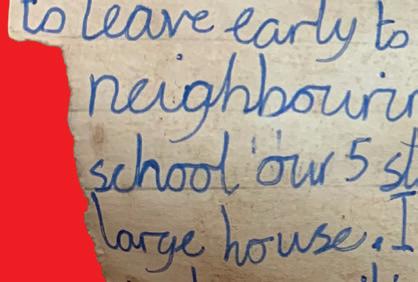 to leave early to
neighbourin
school 'our 5 st
large house. I